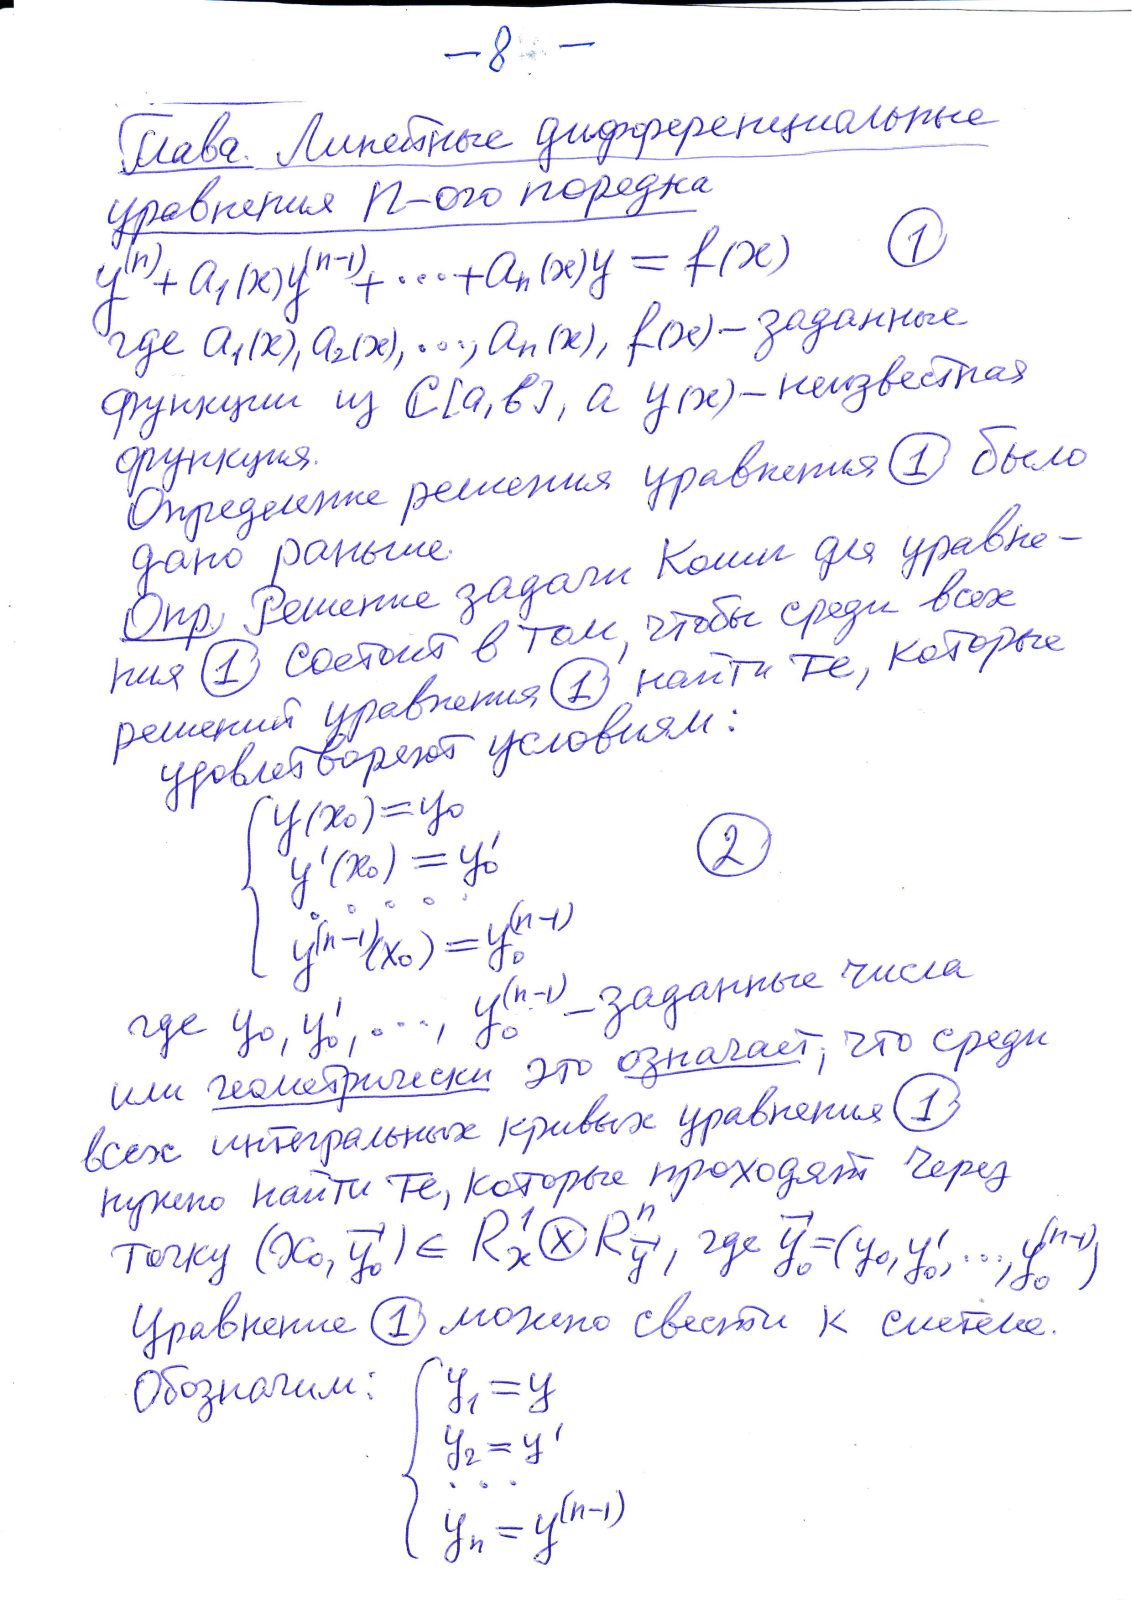 — 8 —
Глава. Линейные дифференциальные
уравнения n-ого порядка
y⁽ⁿ⁾ + a₁(x)y⁽ⁿ⁻¹⁾ + ... + aₙ(x)y = f(x) ①
где a₁(x), a₂(x), ..., aₙ(x), f(x) – заданные
функции из C[a,b], а y(x) – неизвестная
функция.
Определение решения уравнения ① было
дано раньше.
Опр. Решение задачи Коши для уравне-
ния ① состоит в том, чтобы среди всех
решений уравнения ① найти те, которые
удовлетворяют условиям:
{ y(x₀) = y₀
y'(x₀) = y₀' ②
. . . . .
y⁽ⁿ⁻¹⁾(x₀) = y₀⁽ⁿ⁻¹⁾
где y₀, y₀', ..., y₀⁽ⁿ⁻¹⁾ – заданные числа
или геометрически это означает, что среди
всех интегральных кривых уравнения ①
нужно найти те, которые проходят через
точку (x₀, y⃗₀) ∈ R¹ₓ ⊗ Rⁿ_y⃗, где y⃗₀ = (y₀, y₀', ..., y₀⁽ⁿ⁻¹⁾)
Уравнение ① можно свести к системе.
Обозначим: { y₁ = y
y₂ = y'
. . .
yₙ = y⁽ⁿ⁻¹⁾